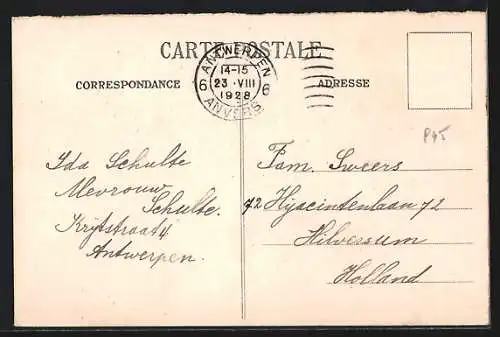 CARTE POSTALE
CORRESPONDANCE
ADRESSE
ANTWERPEN
14-15
6 23 · VIII 6
1928
ANVERS
P45
Ida Schulte
Mevrouw
Schulte.
Krijtstraat 4
Antwerpen.
Fam. Sweers
72 Hyacintenlaan 72
Hilversum
Holland